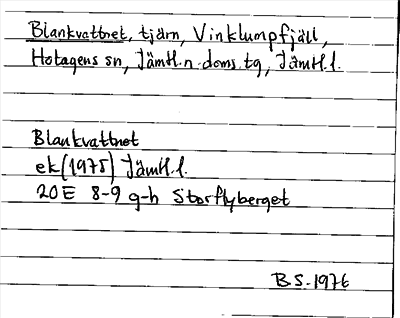 Blankvattnet, tjärn, Vinklumpfjäll,
Hotagens sn, Jämtl.n.doms.tg, Jämtl.l.
Blankvattnet
ek(1975) Jämtl.l.
20E 8-9 g-h Storflyberget
B.S.1976